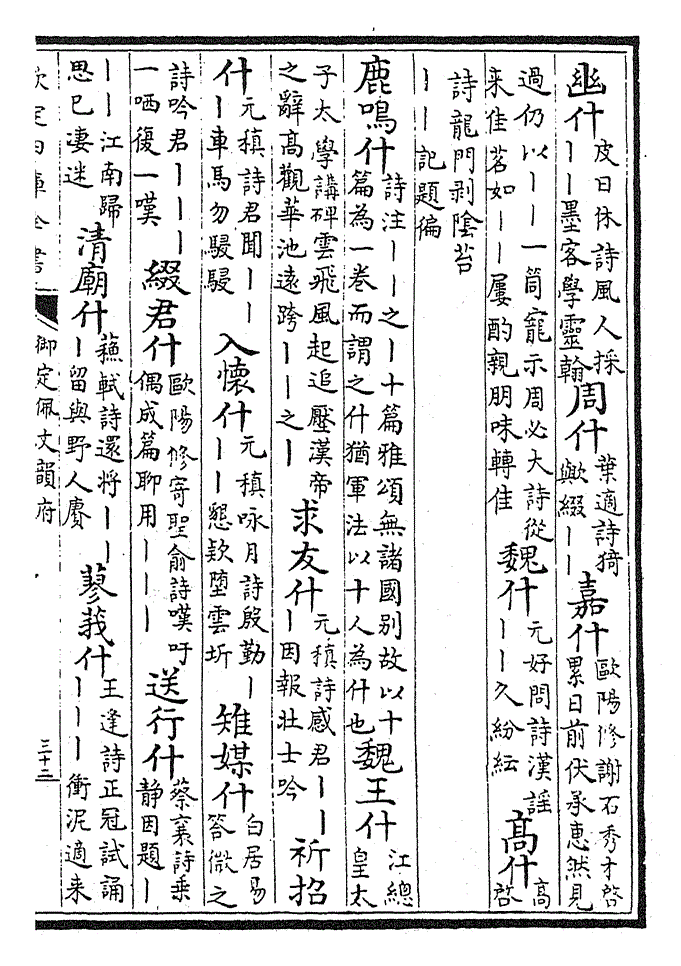 幽什 皮日休詩風人採
丨丨墨客學靈翰
周什 葉適詩猗
歟綴丨丨
嘉什 歐陽修謝石秀才啓
累日前伏承惠然見
過仍以丨丨一筒寵示周必大詩從
来佳茗如丨丨屢酌親朋味轉佳
魏什 元好問詩漢謡
丨丨久紛紜
高什 高
啓
詩龍門剥陰苔
丨丨記題徧
鹿鳴什 詩注丨丨之丨十篇雅頌無諸國别故以十
篇為一卷而謂之什猶軍法以十人為什也
魏王什 江總
皇太
子太學講碑雲飛風起追壓漢帝
之辭髙觀華池遠跨丨丨之丨
求友什 元稹詩感君丨丨
丨因報壮士吟
祈招
什 元稹詩君聞丨丨
丨車馬勿駸駸
入懷什 元稹咏月詩殷勤丨
丨丨懇欵堕雲圻
雉媒什 白居易
答微之
詩吟君丨丨丨
一哂復一嘆
綴君什 歐陽修寄聖俞詩嘆吁
偶成篇聊用丨丨丨
送行什 蔡襄詩乗
静因題丨
丨丨江南歸
思已凄迷
清廟什 蘇軾詩還将丨丨
丨留與野人賡
蓼莪什 王逢詩正冠試誦
丨丨丨衝泥適来
欽定四庫全書
御定佩文韻府
三十三